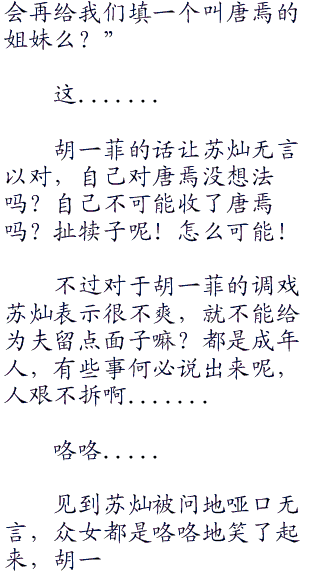 会再给我们填一个叫唐焉的
姐妹么？”
这.......
胡一菲的话让苏灿无言
以对，自己对唐焉没想法
吗？自己不可能收了唐焉
吗？扯犊子呢！怎么可能！
不过对于胡一菲的调戏
苏灿表示很不爽，就不能给
为夫留点面子嘛？都是成年
人，有些事何必说出来呢，
人艰不拆啊.......
咯咯.....
见到苏灿被问地哑口无
言，众女都是咯咯地笑了起
来，胡一